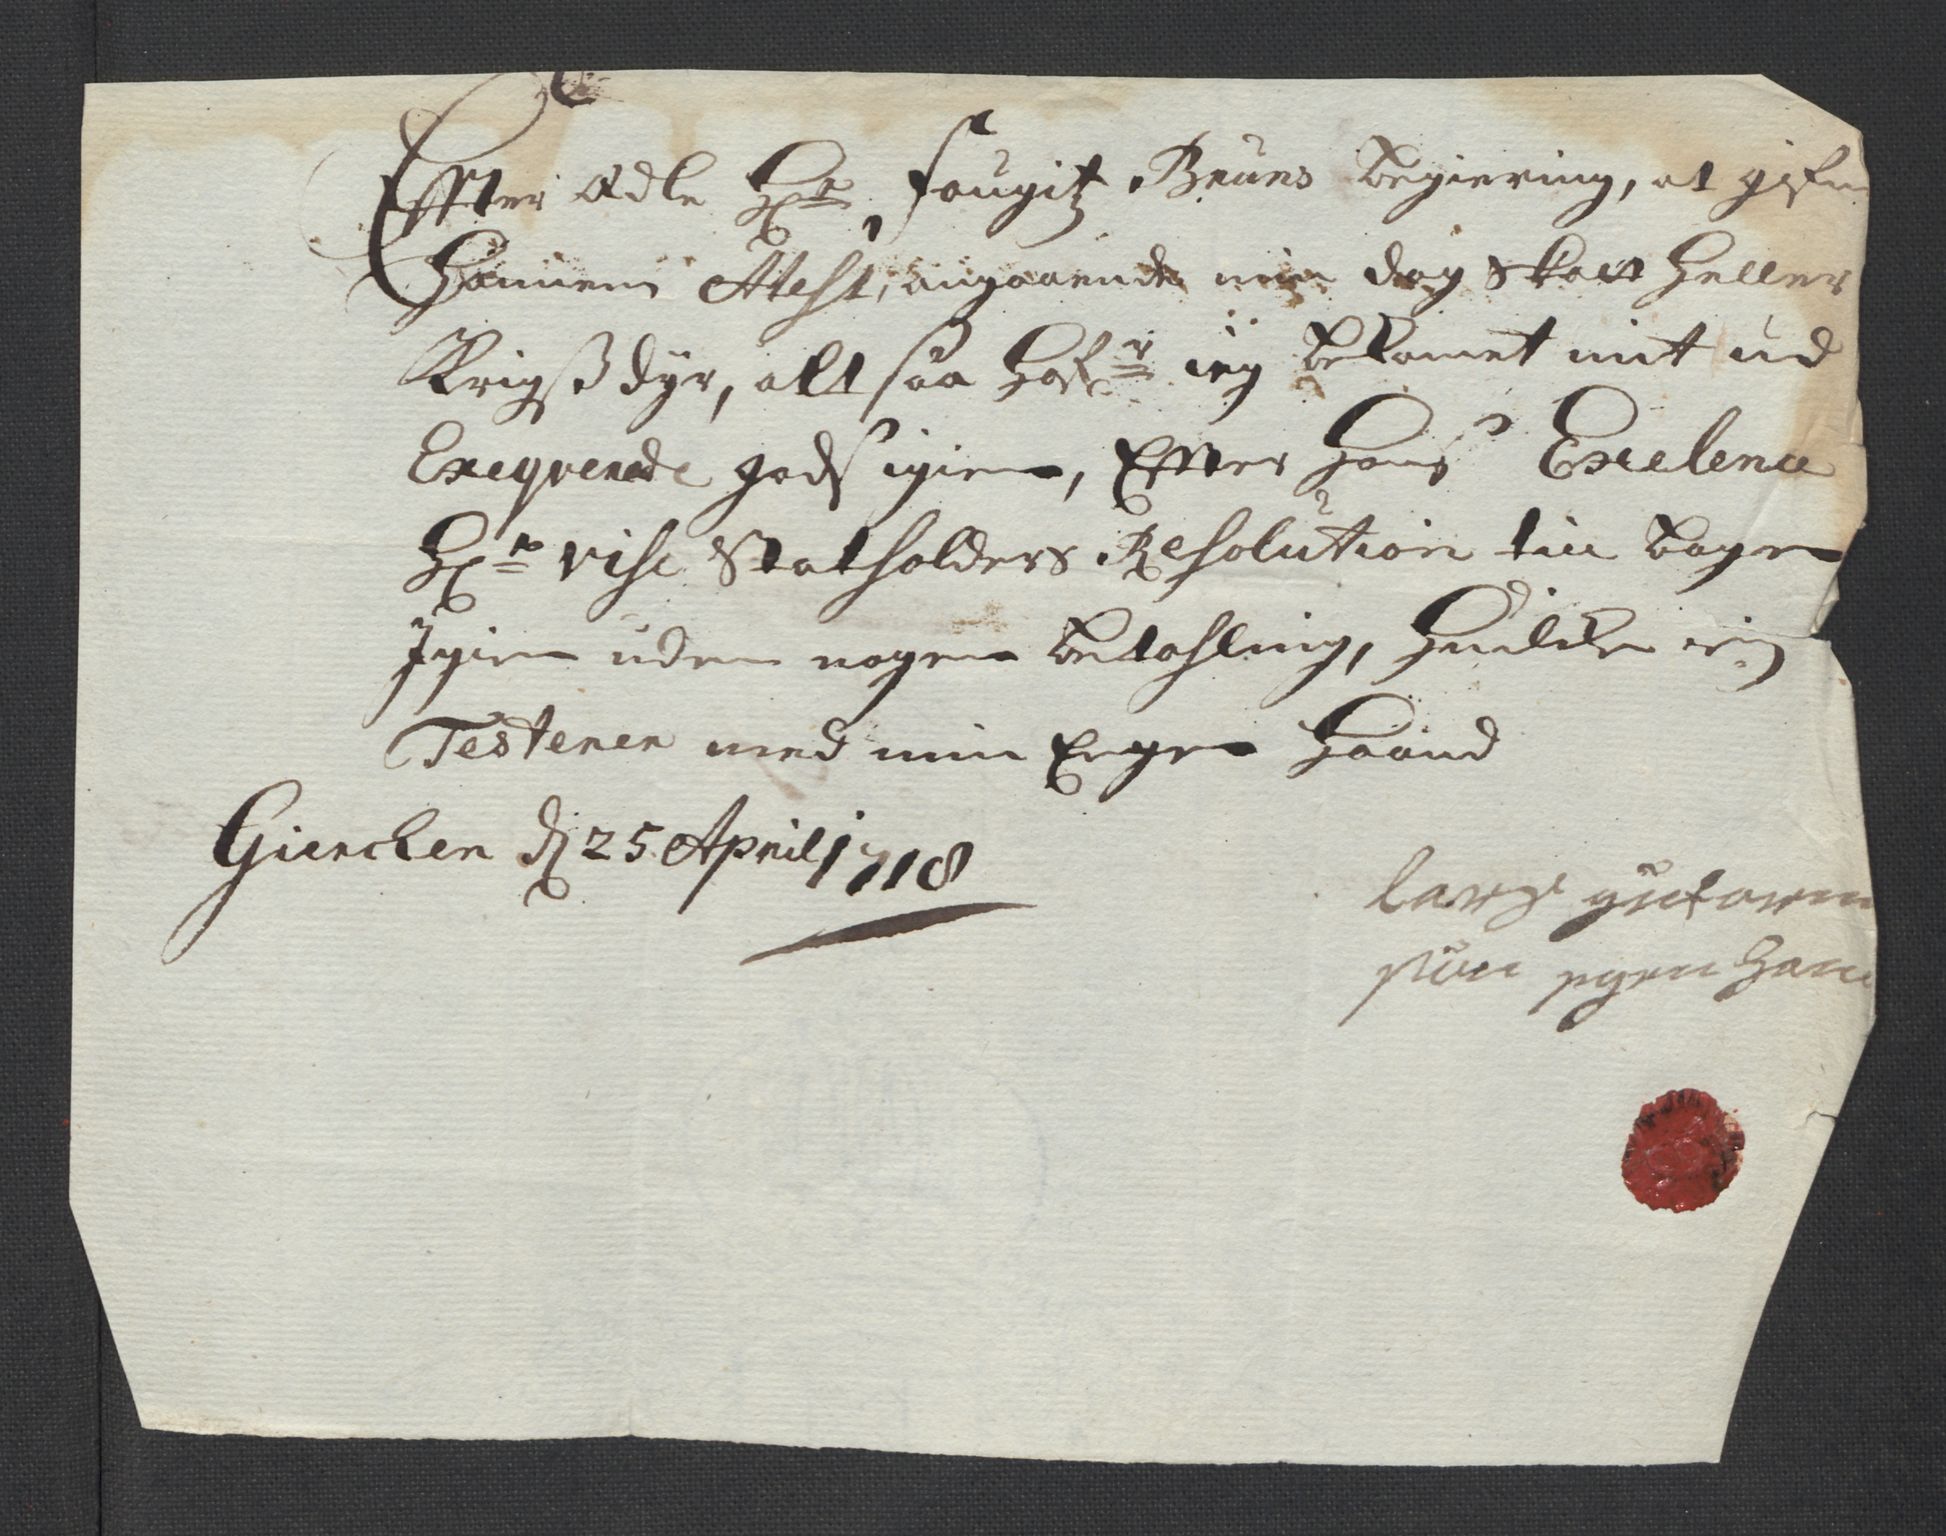 Effter Ædle Hr. fougitz Bruuns begiering, at gifve
Hannem Atest, angaaende min dag skatt heller
Krigsdyr, alt saa hafr ieg bekomet mit ud
Exeqverede gods igien, Effter Hans Excelence
Hr. vise Statholders Resolution till tage
Igien uden nogen betahling, Huilcke ieg
Testerer med min Eegen Haand
Giercken d 25 April 1718
Larss
Eegen Haand